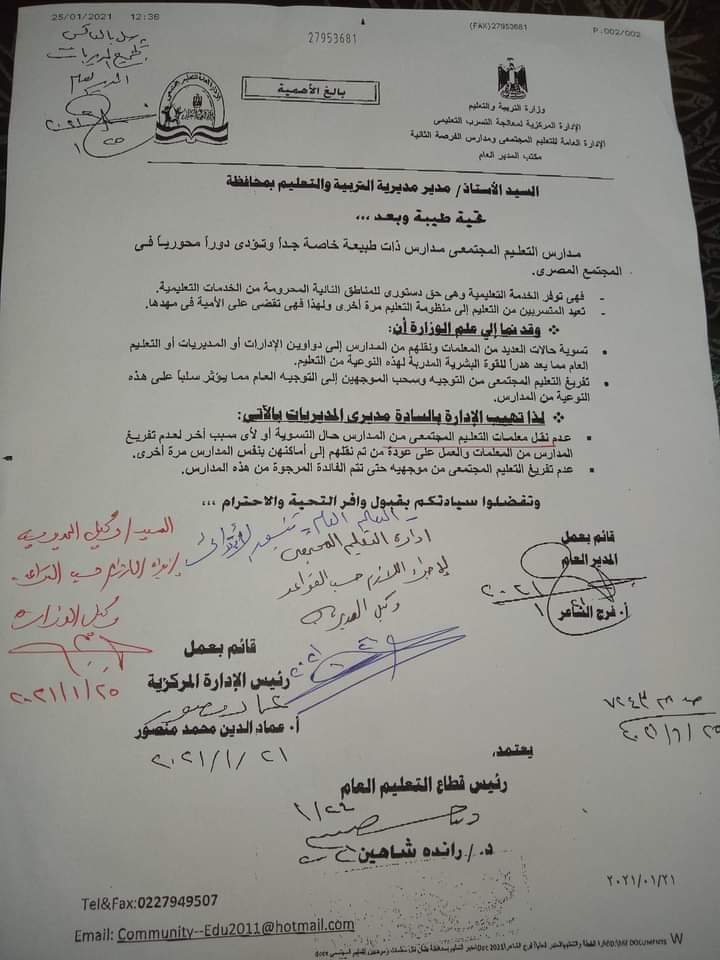 25/01/2021 12:36
27953681
(FAX)27953681
P.002/002
بالغ الأهمية
وزارة التربية والتعليم
الإدارة المركزية لمعالجة التسرب التعليمى
الإدارة العامة للتعليم المجتمعى ومدارس الفرصة الثانية
مكتب المدير العام
السيد الأستاذ/ مدير مديرية التربية والتعليم بمحافظة
تحية طيبة وبعد ،،،
مدارس التعليم المجتمعى مدارس ذات طبيعة خاصة جداً وتؤدى دوراً محورياً فى
المجتمع المصرى.
- فهى توفر الخدمة التعليمية وهى حق دستورى للمناطق النائية المحرومة من الخدمات التعليمية.
- تعيد المتسربين من التعليم إلى منظومة التعليم مرة أخرى ولهذا فهى تقضى على الأمية فى مهدها.
❖ وقد نما إلي علم الوزارة أن:
▪ تسوية حالات العديد من المعلمات ونقلهم من المدارس إلى دواوين الإدارات أو المديريات أو التعليم
العام مما يعد هدراً للقوة البشرية المدربة لهذه النوعية من التعليم.
▪ تفريغ التعليم المجتمعى من التوجيه وسحب الموجهين إلى التوجيه العام مما يؤثر سلباً على هذه
النوعية من المدارس.
❖ لذا تهيب الإدارة بالسادة مديرى المديريات بالآتى:
▪ عدم نقل معلمات التعليم المجتمعى من المدارس حال التسوية أو لأى سبب أخر لعدم تفريغ
المدارس من المعلمات والعمل على عودة من تم نقلهم إلى أماكنهن بنفس المدارس مرة أخرى.
▪ عدم تفريغ التعليم المجتمعى من موجهيه حتى تتم الفائدة المرجوة من هذه المدارس.
وتفضلوا سيادتكم بقبول وافر التحية والاحترام ،،،
السيد / وكيل المديرية
وكيل الوزارة
٢٠٢١/١/٢٥
ادارة التعليم المجتمعى
لإجراء اللازم حسب القواعد
وكيل المديرية
قائم بعمل
المدير العام
٢٠٢١
أ. فرج الشاعر
قائم بعمل
رئيس الإدارة المركزية
أ. عماد الدين محمد منصور
٢٠٢١/١/٢١
يعتمد،
رئيس قطاع التعليم العام
١/٢٤
د./ رانده شاهين
٢٠٢١/٠١/٢١
Tel&Fax:0227949507
Email: Community--Edu2011@hotmail.com